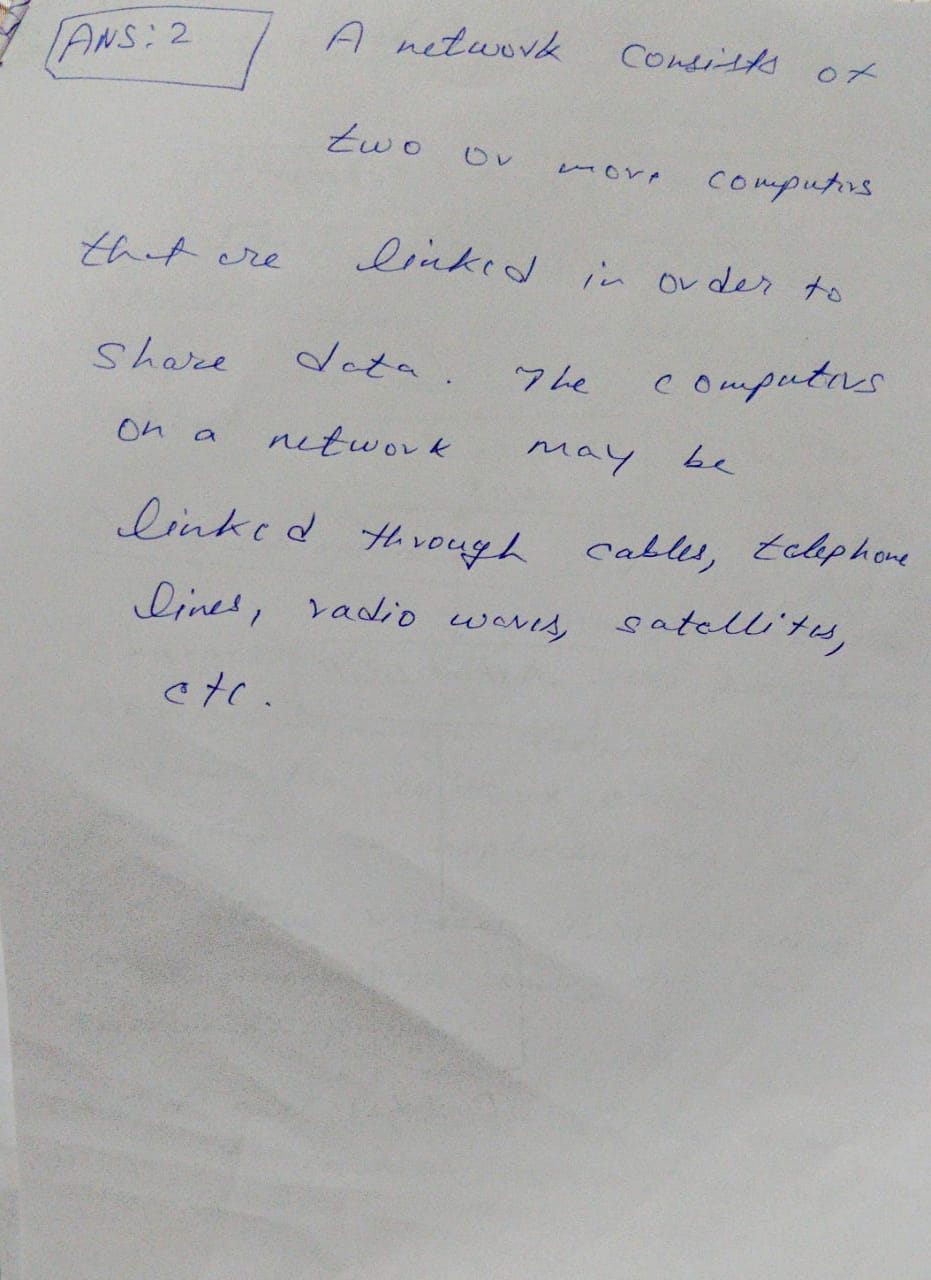 ANS: 2 A network consists of
two or more computers
that are linked in order to
share data. The computers
on a network may be
linked through cables, telephone
lines, radio waves, satellites,
etc.